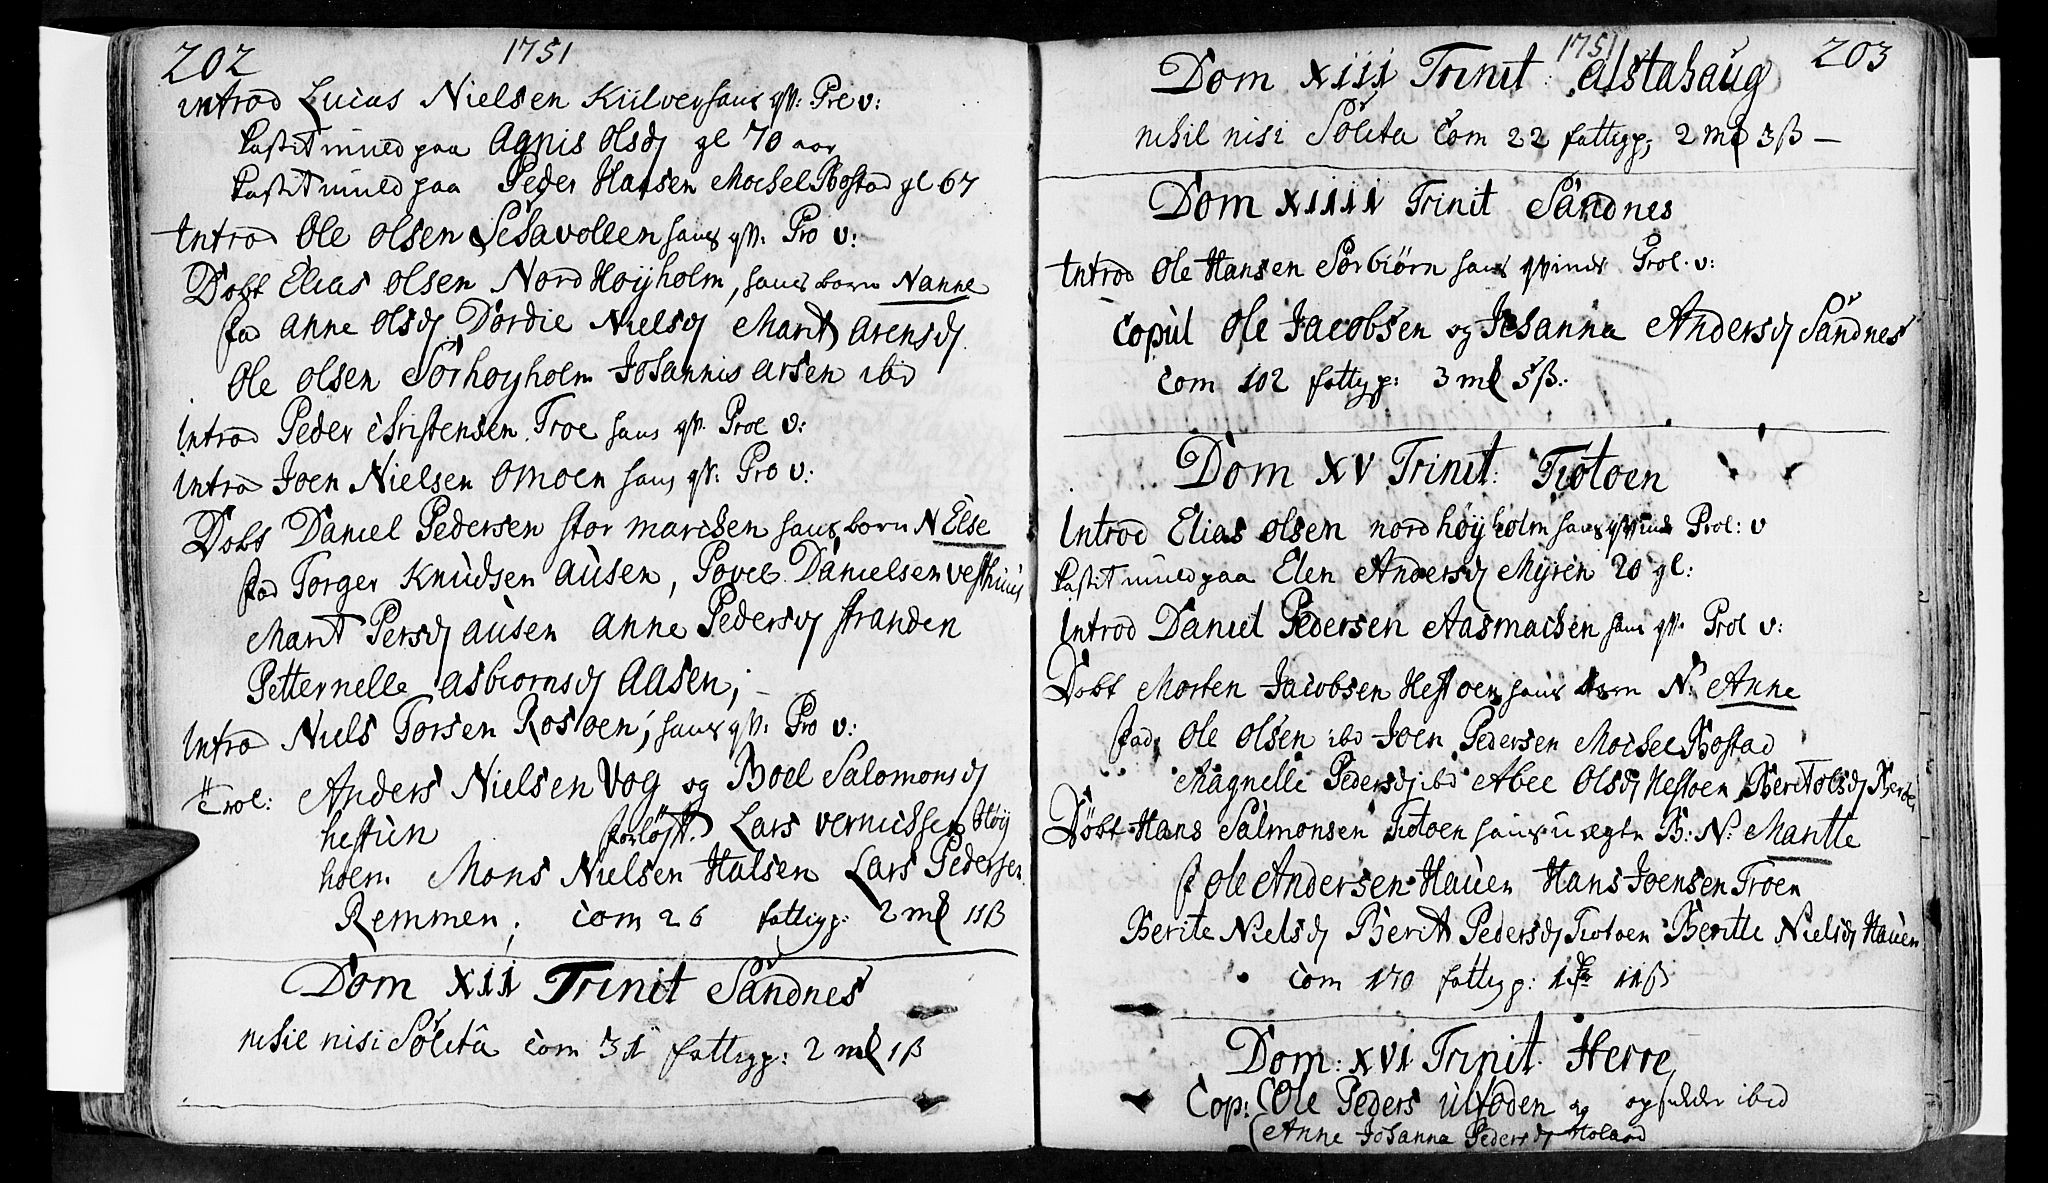 202 1751
introd Lucas Nielsen Kiilver hans qv: Pro v:
kastit muld paa Agnis Olsd gl 70 aar
kastit muld paa Peder Hansen Mochel Bostad gl 67
Introd Ole Olsen Lehavollen hans qv: Pro v:
Dobt Elias Olsen Nord Hoyholm, hans barn Nanne
fad Anne Olsd Dordie Nielsd Marit Arensd
Ole Olsen Sörhoyholm Johannis Arsen ibid
Introd Peder Christensen Troe hans qv. Prol v:
Introd Joen Nielsen Omoen hans qv: Pro v:
Dobt Daniel Pedersen stor marchen hans barn N Else
fad Torger Knudsen Ausen, Povel Danielsen Vesthuus
Marit Persd Ausen Anne Pedersd Stranden
Petternelle Asbiornsd Aasen;
Introd Niels Torsen Rosoen; hans qv: Pro v:
Trol: Anders Nielsen Vog og Boel Salomonsd
hestun forløft. Lars Höy
holm. Mons Nielsen Halsen Lars Pedersen
Remmen; com 26 fattigp: 2 ml 11ß
Dom XII Trinit Sandnes
nihil nisi Solita com 31 fattigp: 2 ml 1ß
1751 203
Dom XIII Trinit: Alstahaug
nihil nisi Solita com 22 fattigp: 2 ml 3ß —
Dom XIIII Trinit Sandnes
Introd Ole Hansen Sorbiörn hans qvinde Prol. v:
Copul Ole Jacobsen og Johanna Andersd Sandnes
com 102 fattigp: 3 ml 5ß:
Dom XV Trinit: Tiotoen
Introd Elias Olsen nord höyholm hans qvinde Prol: v
kastit muld paa Elen Andersd Myren 20 gl:
Introd Daniel Pedersen Aasmachen hans qv. Prol v:
Dobt Morten Jacobsen Hestoen hans barn N: Anne
fad: Ole Olsen ibd Joen Pedersen Mochel Bostad
Magnelle Pedersd ibd Abel Olsd Hestoen Berit Olsd
Döbt Hans Salmonsen Tiotoen hans uægte B: N: Maritte
f Ole Andersen Hauen Hans Joensen Troen
Berite Nielsd Berit Pedersd Tiotoen Beritte Nielsd Hauen
com 170 fattigp: 1 11ß
Dom: XVI Trinit. Herre
Cop: (Ole Peders Ulfoden og ibid
(Anne Johanna Pedersd Holand